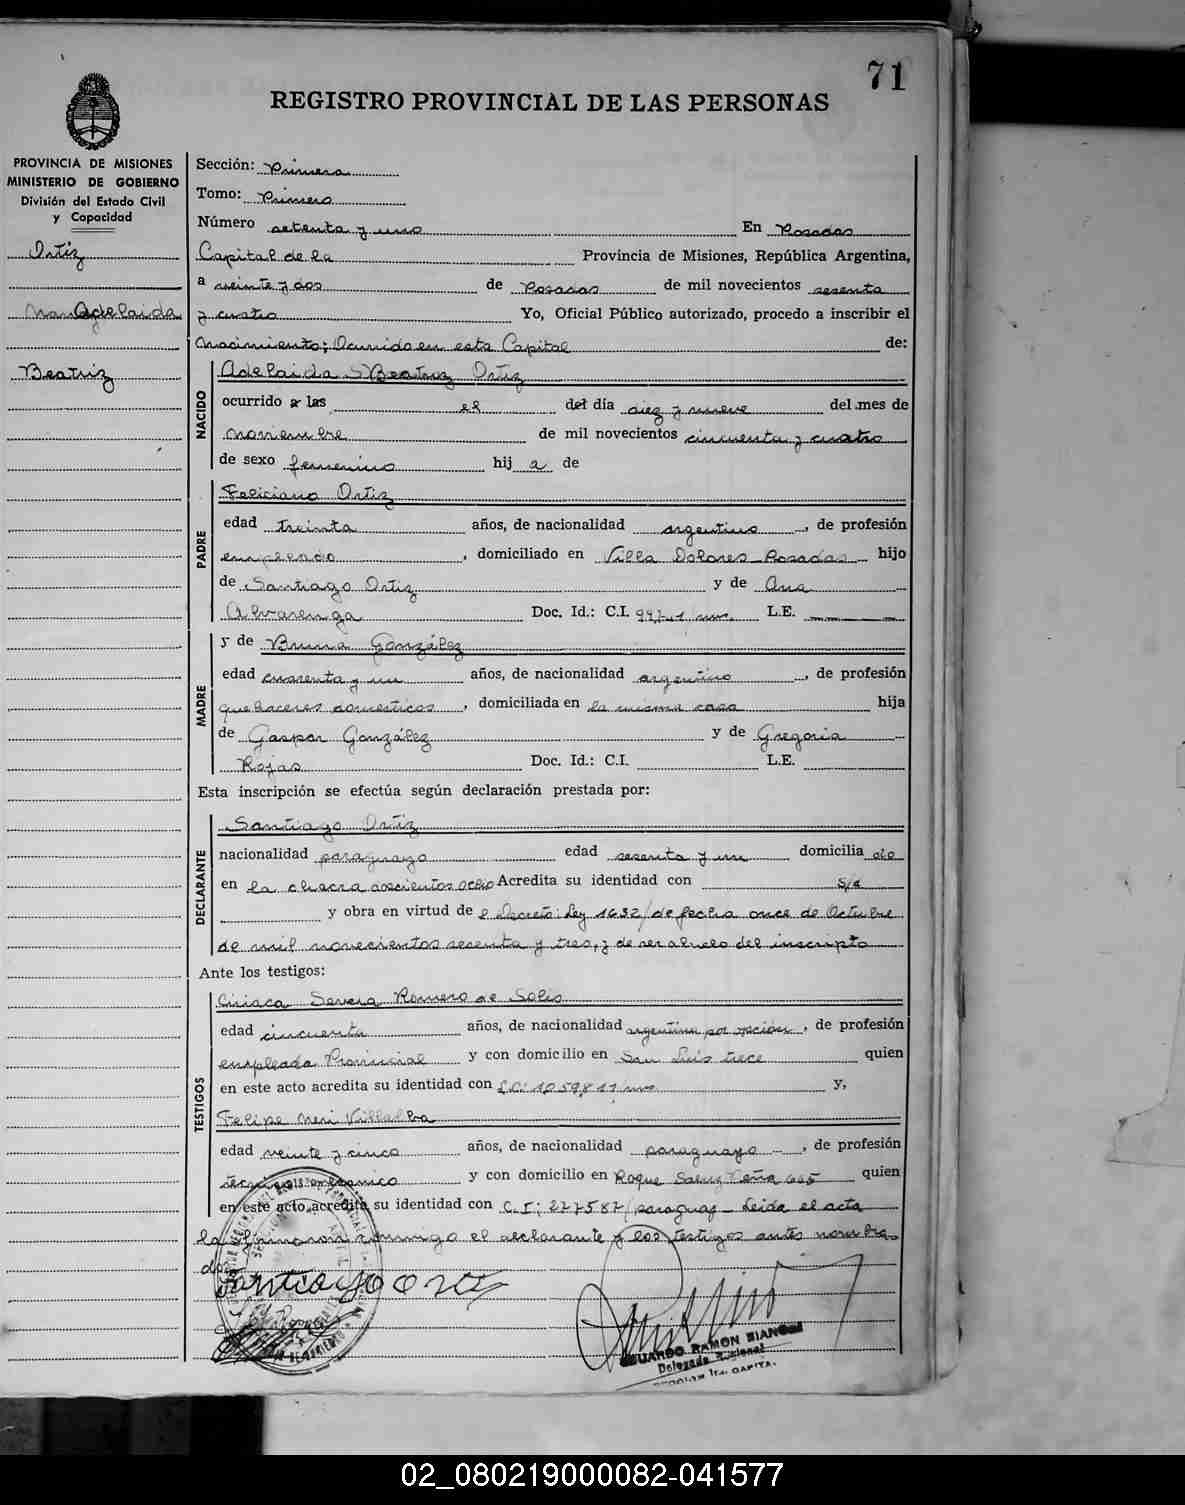 71
REGISTRO PROVINCIAL DE LAS PERSONAS
PROVINCIA DE MISIONES
MINISTERIO DE GOBIERNO
División del Estado Civil
y Capacidad
Ortiz
Adelaida
Beatriz
Sección: Primera
Tomo: Primero
Número setenta y uno En Posadas
Capital de la Provincia de Misiones, República Argentina,
a veinte y dos de Posadas de mil novecientos sesenta
y cuatro Yo, Oficial Público autorizado, procedo a inscribir el
Nacimiento; Ocurrido en esta Capital de:
NACIDO
Adelaida Beatriz Ortiz
ocurrido a las el del día diez y nueve del mes de
Noviembre de mil novecientos cincuenta y cuatro
de sexo femenino hij a de
PADRE
Feliciano Ortiz
edad treinta años, de nacionalidad argentino, de profesión
empleado, domiciliado en Villa Dolores-Posadas hijo
de Santiago Ortiz y de Ana
Alvarenga Doc. Id.: C.I. L.E.
MADRE
y de Bruna González
edad cuarenta y un años, de nacionalidad argentino, de profesión
quehaceres domesticos, domiciliada en la misma casa hija
de Gaspar González y de Gregoria
Rojas Doc. Id.: C.I. L.E.
Esta inscripción se efectúa según declaración prestada por:
DECLARANTE
Santiago Ortiz
nacionalidad paraguayo edad sesenta y un domicilia do
en la chacra doscientos ocho Acredita su identidad con s/d
y obra en virtud de Decreto: Ley 1632/ de fecha once de Octubre
de mil novecientos sesenta y tres, y de ser abuelo del inscripto
Ante los testigos:
TESTIGOS
Ciriaca Severa Romero de Solis
edad cincuenta años, de nacionalidad argentina por opción, de profesión
empleada Provincial y con domicilio en San Luis trece quien
en este acto acredita su identidad con y,
Felipe Neri Villalba
edad veinte y cinco años, de nacionalidad paraguayo, de profesión
mecanico y con domicilio en Roque Saenz Peña 665 quien
en este acto acredita su identidad con C.I; 277587/paraguay - Leida el acta
la firmaron conmigo el declarante y los testigos antes nombra
dos
Santiago Ortiz
EDUARDO RAMON BIANCHI
Delegado Regional
02_080219000082-041577